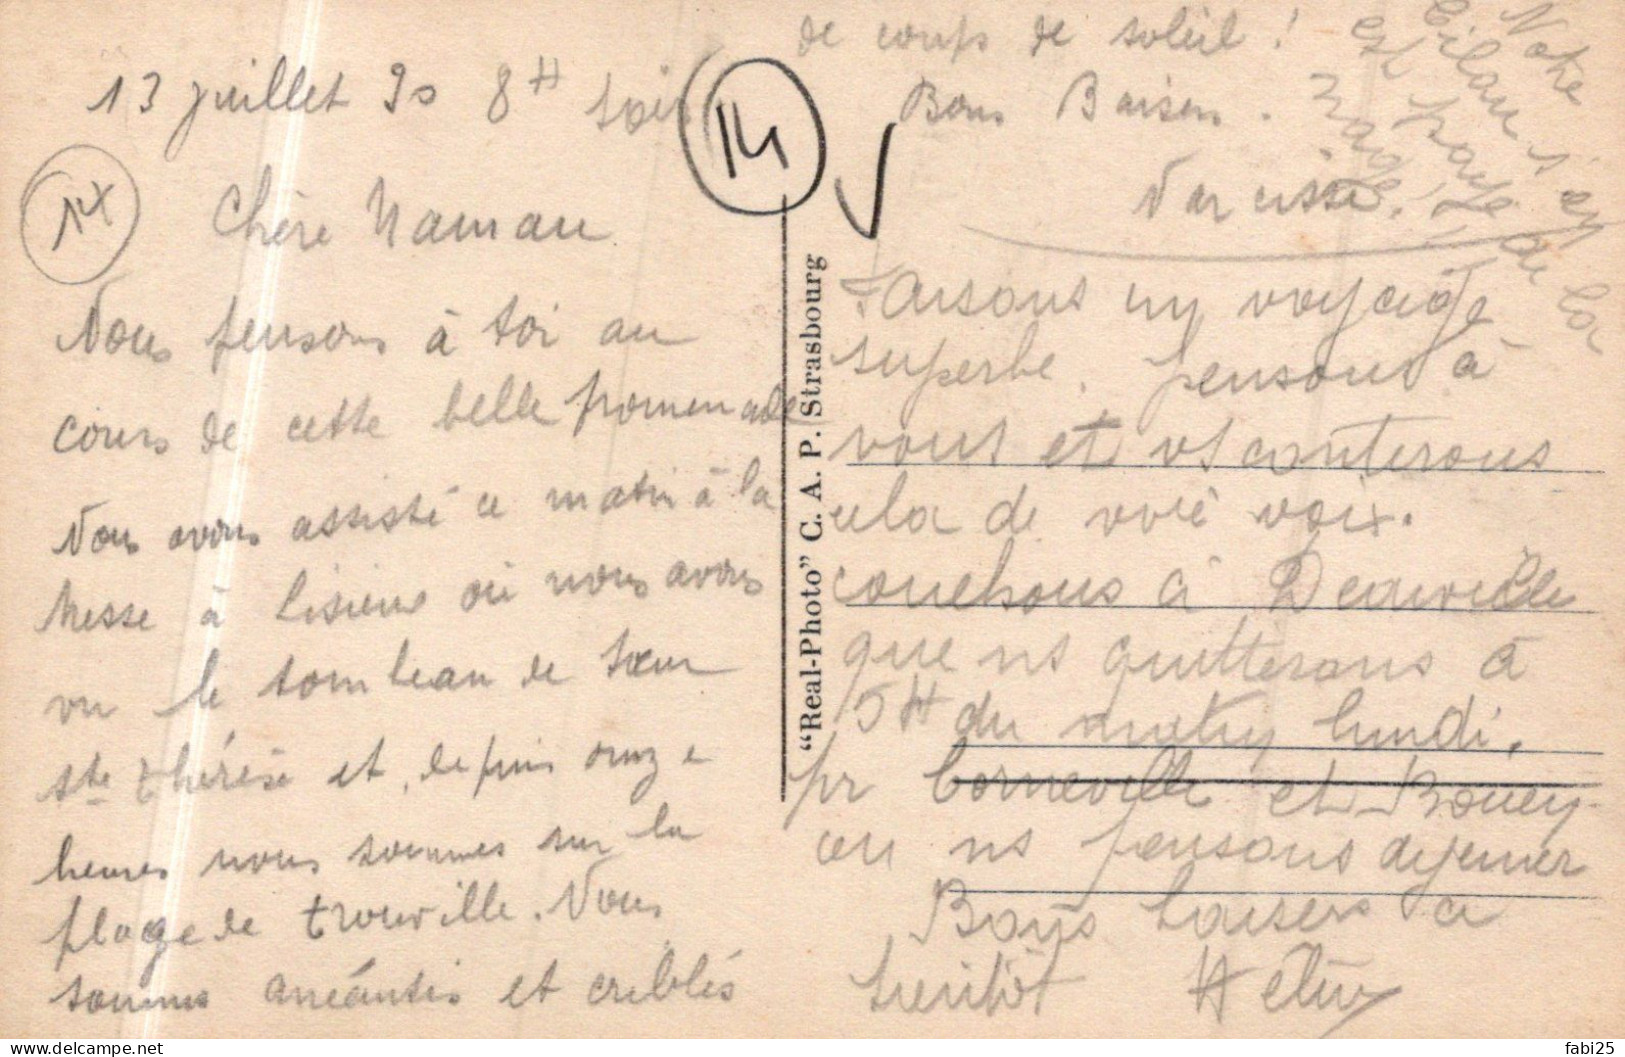 13 juillet 30 8H soir
14
14
Chère Maman
Nous pensons à toi au
cours de cette belle promenade
Nous avons assisté ce matin à la
Messe à Lisieux où nous avons
vu le tombeau de Sœur
Ste Thérèse et depuis onze
heures nous sommes sur la
plage de trouville. Nous
sommes anéantis et criblés
de coups de soleil !
Bons Baisers.
Narcisse.
Notre
Bilan s'en
est payé de la
nage !
"Real-Photo" C. A. P. Strasbourg
Faisons un voyage
superbe. pensons à
vous et vs conterons
cela de vive voix.
couchons à Deauville
que ns quitterons à
5H du matin lundi.
pr Corneville et Rouen
ou ns pensons dejeuner
Bons baisers a
bientôt
fabi25